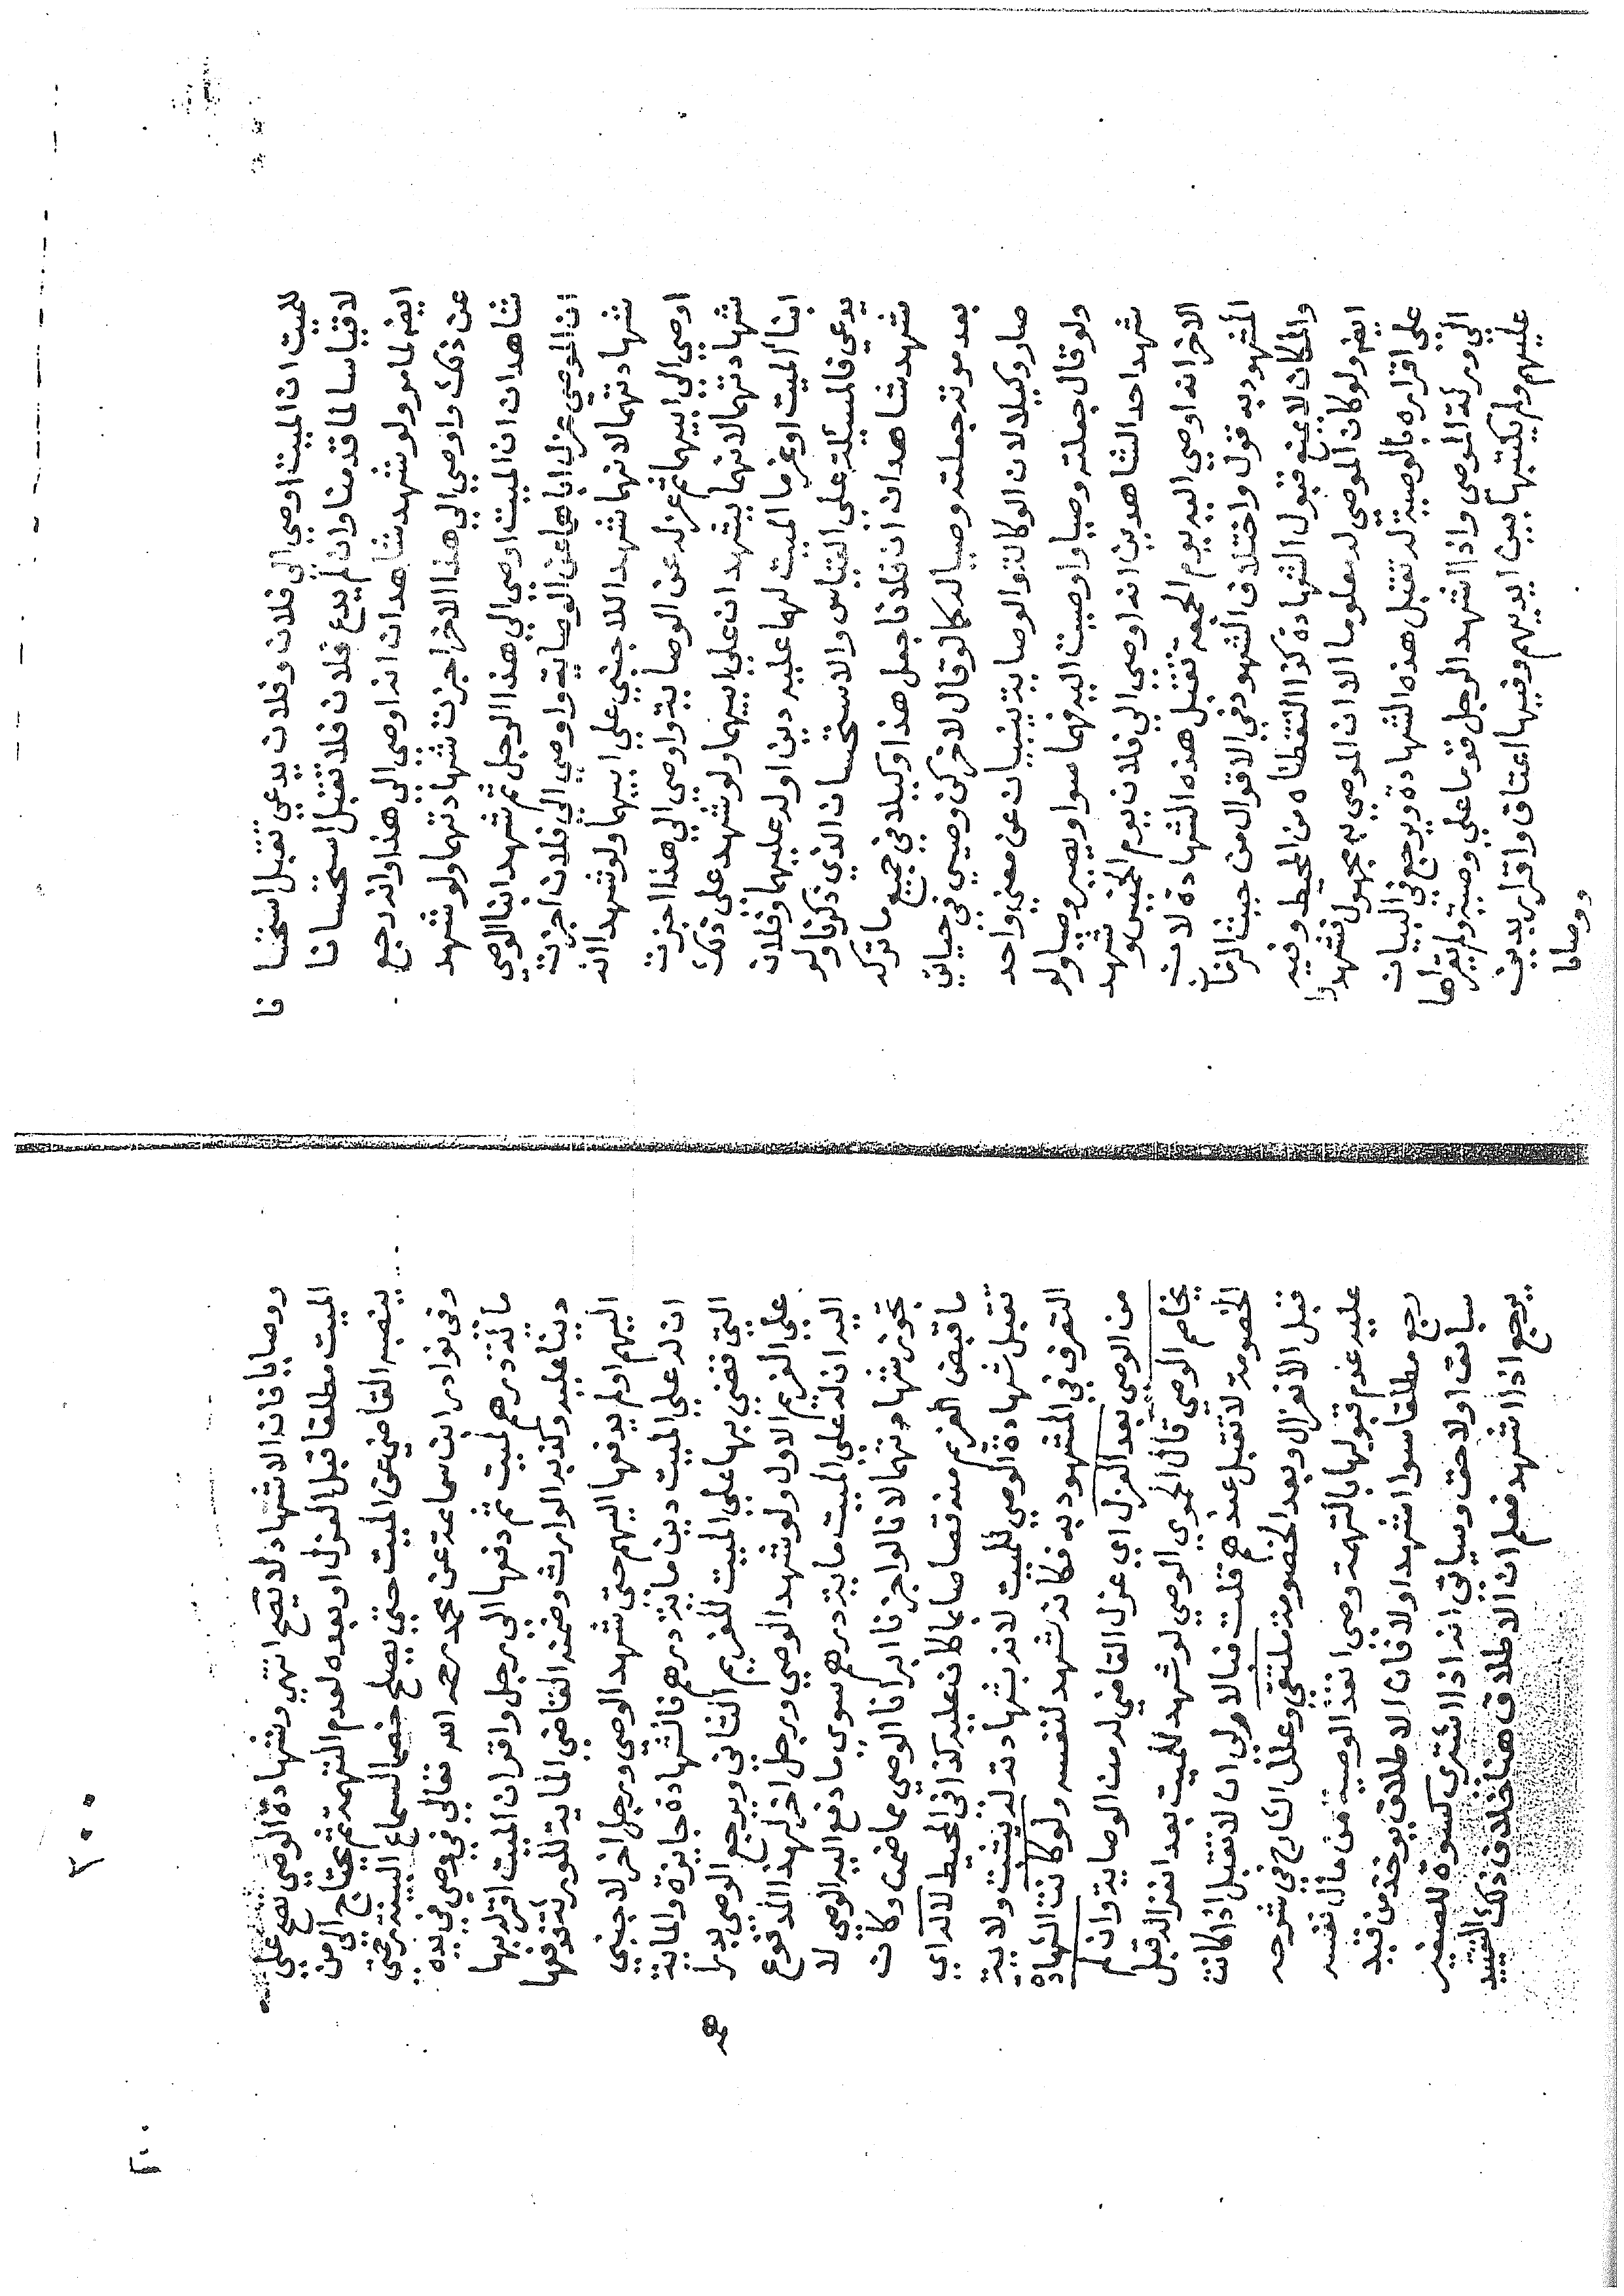 للميت ان الميت اوصي الي فلان وفلان يدعي تقبل استحسانا
لا قياسا لما قدمنا وان لم يدع فلان فلا تقبل استحسانا
ايضا لما مر ولو شهد شاهدان انه اوصي الي هذا وانه رجع
عن ذلك واوصي الي هذا الاخر اجزت شهادتهما ولو شهد
شاهدان ان الميت اوصي الي هذا الرجل ثم شهد ابنا الوصي
ان الموصي عزل اباهما عن الوصاية واوصي الي فلان اجزت
شهادتهما لانهما شهدا للاجنبي علي ابيهما ولو شهدا انه
اوصي الي ابيهما ثم عزله عن الوصاية واوصي الي هذا اجزت
شهادتهما لانهما يشهدان علي ابيهما ولو شهد علي ذلك
ابنا الميت او غرما الميت لهما عليه دين او له عليهما وفلان
يدعي فالمسئلة علي القياس والاستحسان الذي ذكرنا ولو
شهد شاهدان ان فلانا جعل هذا وكيلا في جميع ما تركه
بعد موته جعلته وصيا له كما لو قال لاخر كن وصيي في حياتي
صار وكيلا لان الوكالة والوصاية تنبيان عن معني واحد
ولو قال جعلته وصيا واوصيت اليه فهما سوا ويصير وصيا ولو
شهد احد الشاهدين انه اوصي الي فلان يوم الخميس وشهد
الاخر انه اوصي اليه يوم الجمعة تقبل هذه الشهادة لان
المشهود به قول واختلاف الشهود في الاقوال من حيث الزمان
والمكان لا يمنع قبول الشهادة كذا التقطناه من المحيط وفيه
ايضا ولو كان الموصي له معلوما الا ان الموصي به مجهول فشهدوا
علي اقراره بالوصية له تقبل هذه الشهادة ويرجع في البيان
الي ورثة الموصي واذا اشهد الرجل قوما علي وصية ولم يقراها
عليهم ولم يكتبها بين ايديهم وفيها اعتاق واقرار بدين
ووصايا
٢٠٠
ووصايا فان الاشهاد لا يصح انتهي وشهادة الوصي تصح علي
الميت مطلقا قبل العزل او بعده لعدم التهمة ثم يحتاج الي من
ينصبه القاضي عن الميت حتي يصلح خصما لسماع البينة
وفي نوادر ابن سماعة عن محمد رحمه الله تعالي في وصي في يده
مائة درهم لميت ثم دفعها الي رجل واقر ان الميت اقر له بها
دينا عليه وكذبه الوارث وضمنه القاضي الماية للورثة فدفعها
اليهم او لم يدفعها اليهم حتي شهد الوصي ورجل اخر لاجنبي
ان له علي الميت دين ماية درهم فالشهادة جايزة والماية
التي قضي بها علي الميت للغريم الثاني ويرجع الوصي بدرا
علي الغريم الاول ولو شهد الوصي ورجل اخر لهذا المدفوع
اليه ان له علي الميت ماية درهم سوي ما دفع اليه الوصي لا
تجوز شهادتهما لانا لو اجزنا ابرانا الوصي مما ضمن وكان
ما قبض الغريم منه قصاصا بما كان عليه كذا في المحيط
تقبل شهادة الوصي للميت لانه بشهادته له يثبت ولاية
التصرف في المشهود به فكانه شهد لنفسه ولو كانت الشهادة
من الوصي بعد العزل اي عزل القاضي له من الوصاية وان لم
يخاصم الوصي قال الحموي الوصي لو شهد للميت بعد انعزاله قبل
الخصومة لا تقبل عندهم قلت فبالاولي ان لا تقبل اذا كانت
قبل الانعزال وبعد الخصومة ملتقي وعلل الشارح في شرحه
عليه عدم قبولها بالتهمة وصي انفذ الوصية من مال نفسه
رجع مطلقا سوا اشهد اولا فان الاطلاق يوخذ من قيد
سابق او لاحق وسياتي انه اذا اشتري كسوة للصغير
يرجع اذا اشهد فعلم ان الاطلاق هنا خلاف ذلك القيد